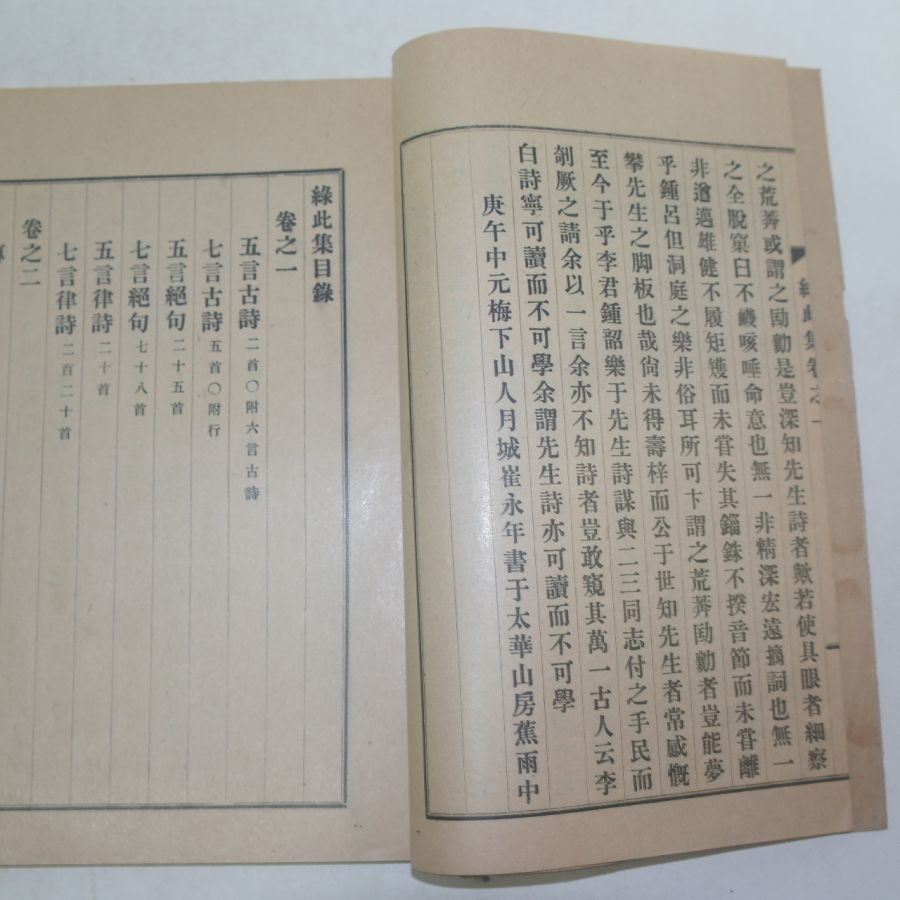 之荒莽或謂之勖勷是豈深知先生詩者歟若使具眼者細察
之全脫窠臼不巉咳唾命意也無一非精深宏遠摛詞也無一
非遒邁雄健不履矩矱而未甞失其錙銖不揆音節而未甞離
乎鍾呂但洞庭之樂非俗耳所可卞謂之荒莽勖勷者豈能夢
攀先生之脚板也哉尙未得壽梓而公于世知先生者常感慨
至今于乎李君鍾韶樂于先生詩謀與二三同志付之手民而
剞厥之請余以一言余亦不知詩者豈敢窺其萬一古人云李
白詩寧可讀而不可學余謂先生詩亦可讀而不可學
庚午中元梅下山人月城崔永年書于太華山房蕉雨中
此集卷之一
綠此集目錄
卷之一
五言古詩 二首〇附六言古詩
七言古詩 五首〇附行
五言絕句 二十五首
七言絕句 七十八首
五言律詩 二十首
七言律詩 二百二十首
卷之二